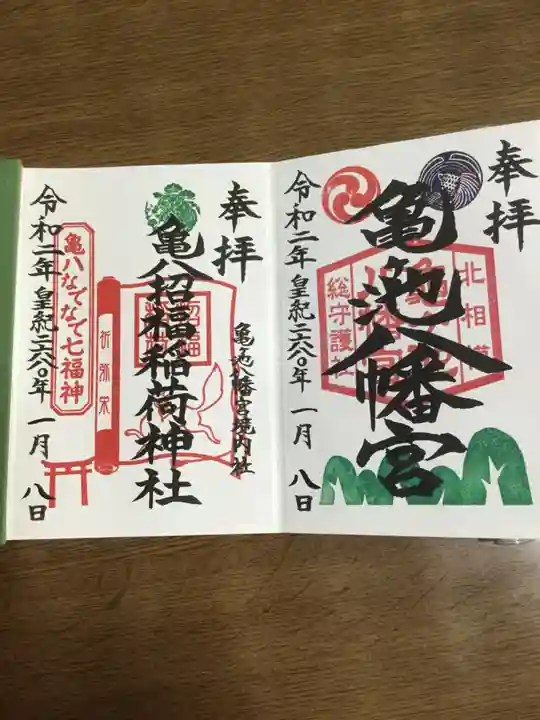 奉拝
亀池八幡宮
北相模
総守護社
令和二年 皇紀二六八〇年 一月 八日
奉拝
亀池八幡宮境内社
亀八招福稲荷神社
祈弥栄
亀八なでなで七福神
令和二年 皇紀二六八〇年 一月 八日